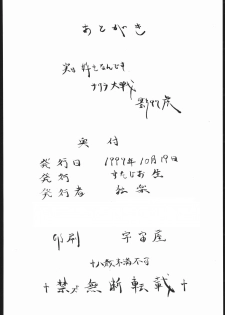 あとがき
実は好きなんです
サクラ大戦
奥付
発行日 1997年10月19日
発行 すたじお生
発行者
印刷 宇宙屋
十八歳未満不可
†禁〆無断転載†